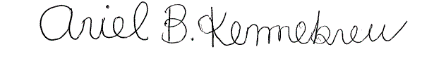 Ariel B. Kennebrew